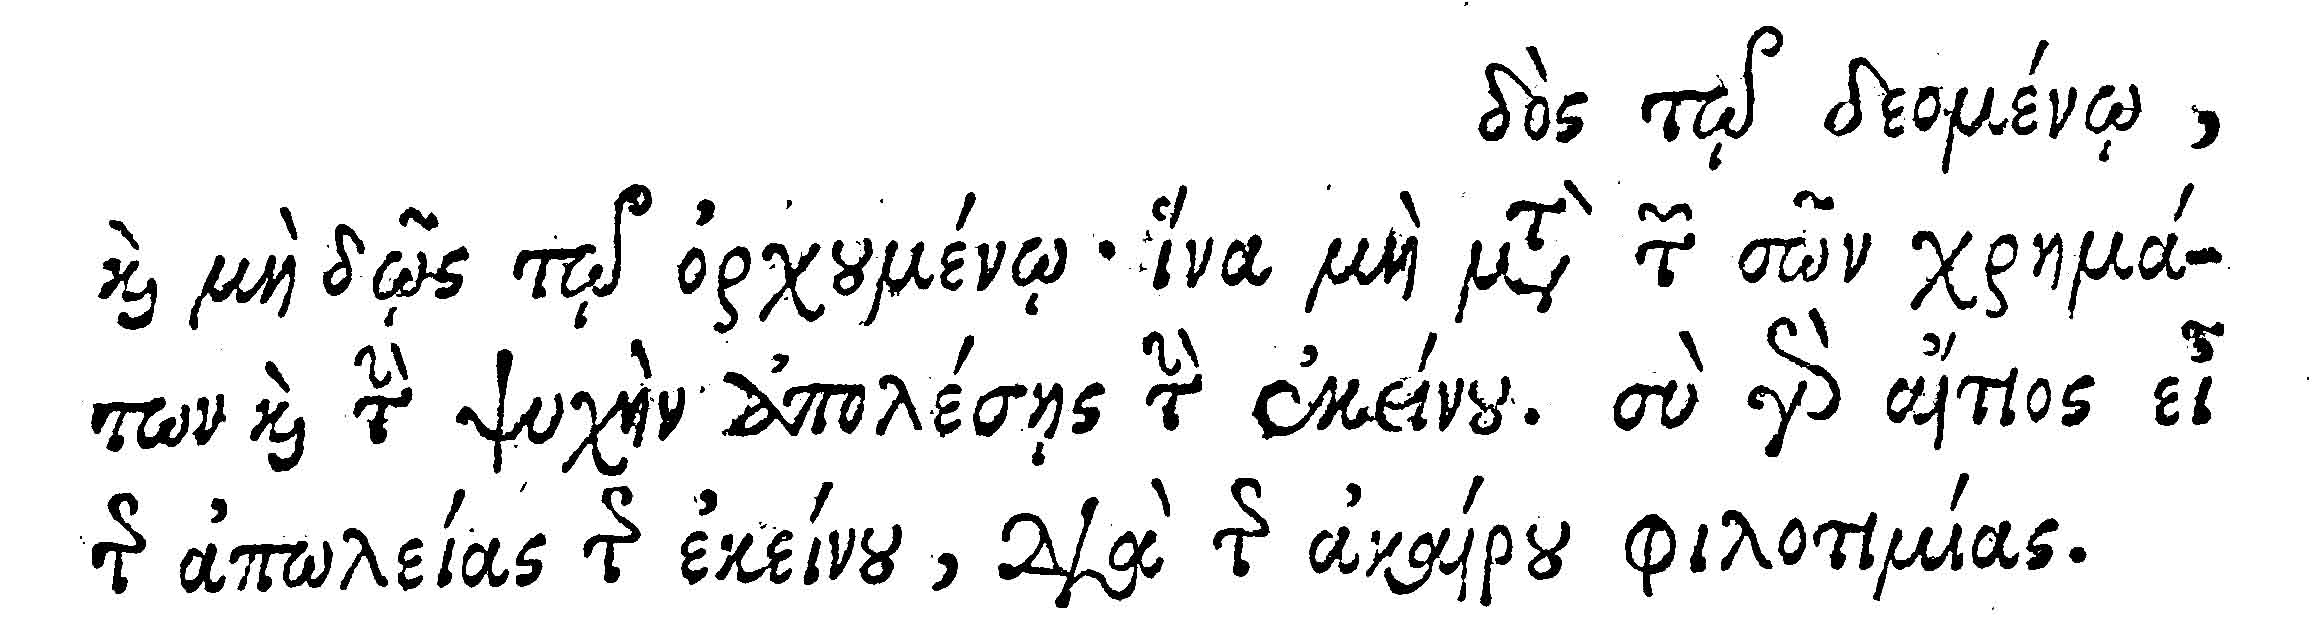 δὸς τῷ δεομένῳ,
καὶ μὴ δῷς τῷ ὀρχουμένῳ· ἵνα μὴ μετὰ τῶν σῶν χρημά-
των καὶ τὴν ψυχὴν ἀπολέσῃς τὴν ἐκείνου. σὺ γὰρ αἴτιος εἶ
τῆς ἀπωλείας τῆς ἐκείνου, διὰ τῆς ἀκαίρου φιλοτιμίας.